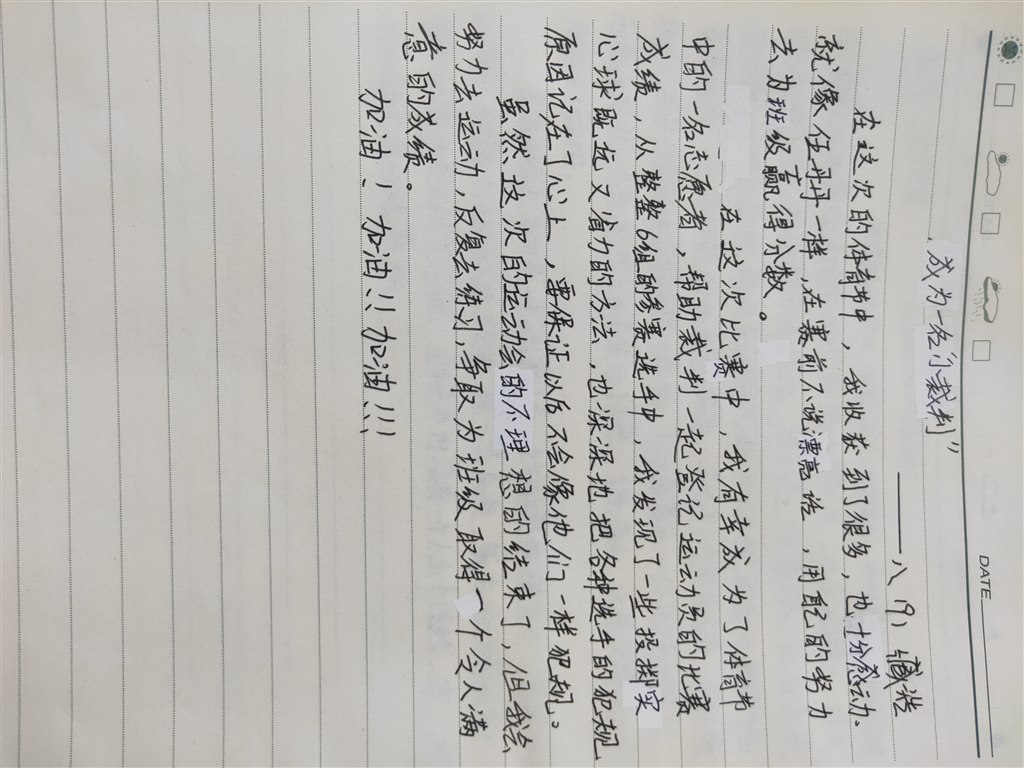 DATE
“成为一名小裁判”
——八(9)臧浩
在这次的体育节中，我收获到了很多，也十分感动。
就像伍丹丹一样，在赛前不说漂亮话，用自己的努力
去为班级赢得分数。
在这次比赛中，我有幸成为了体育节
中的一名志愿者，帮助裁判一起登记运动员的比赛
成绩，从整整6组的参赛选手中，我发现了一些投掷实
心球既远又省力的方法，也深深地把各种选手的犯规
原因记在了心上，要保证以后不会像他们一样犯规。
虽然这次的运动会的不理想的结束了，但我会
努力去运动，反复去练习，争取为班级取得一个令人满
意的成绩。
加油！加油！！加油！！！